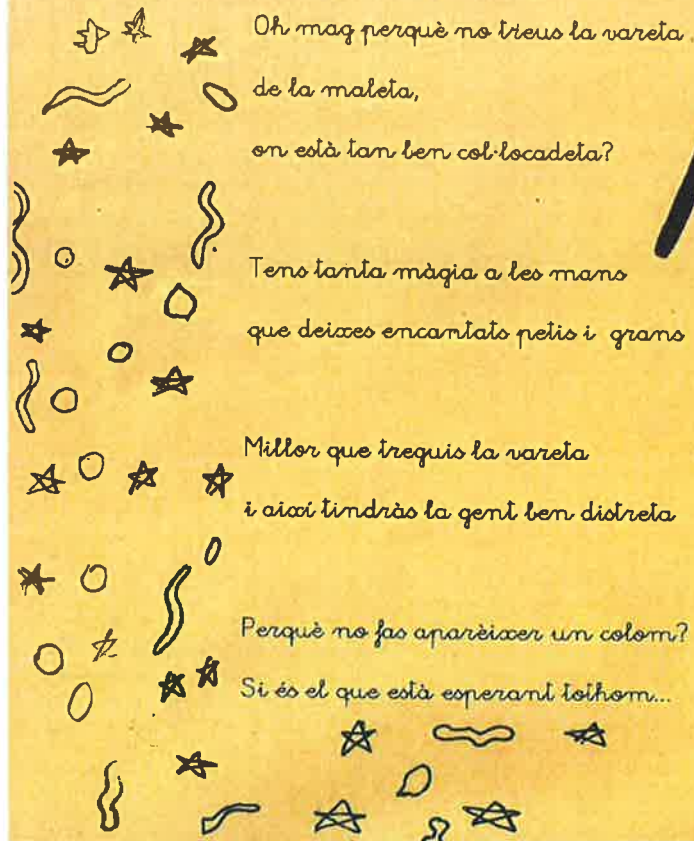 Oh mag perquè no treus la vareta
de la maleta,
on està tan ben col·locadeta?
Tens tanta màgia a les mans
que deixes encantats petis i grans
Millor que treguis la vareta
i així tindràs la gent ben distreta
Perquè no fas aparèixer un colom?
Si és el que està esperant tothom...